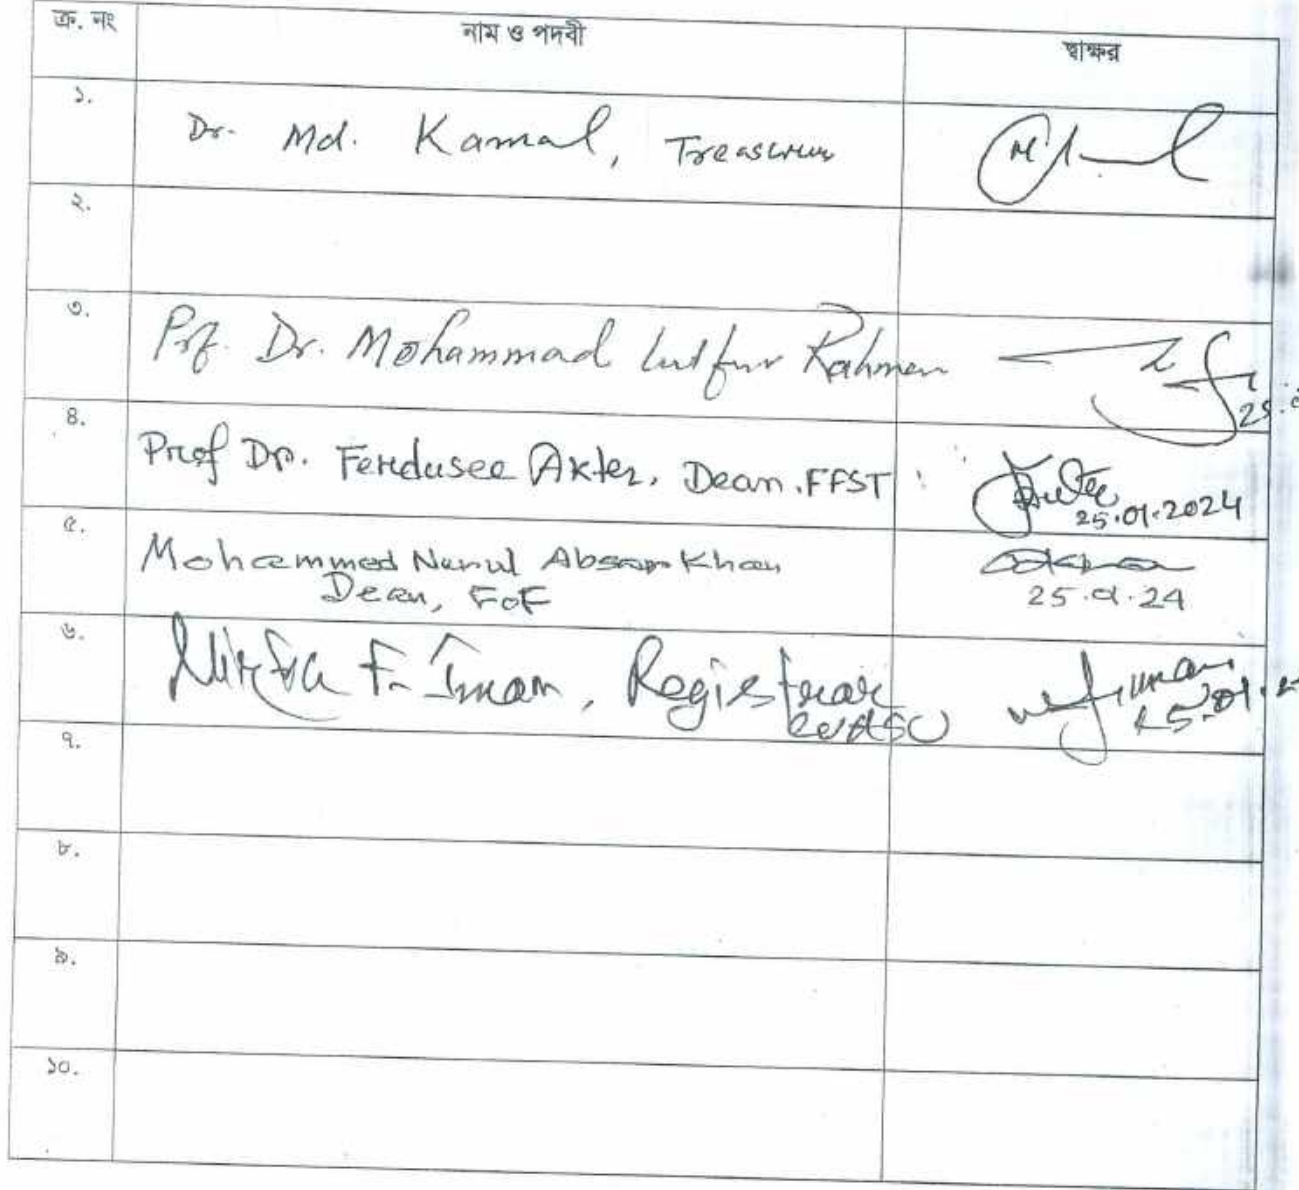 ক্র. নং নাম ও পদবী স্বাক্ষর
১. Dr. Md. Kamal, Treasurer
২.
৩. Prof. Dr. Mohammad Lutfur Rahman 25.
৪. Prof Dr. Ferdusee Akter, Dean, FFST 25.01.2024
৫. Mohammed Nurul Absar Khan
Dean, FoF 25.01.24
৬. Mirza F. Imam, Registrar
25.01.2
৭.
৮.
৯.
১০.